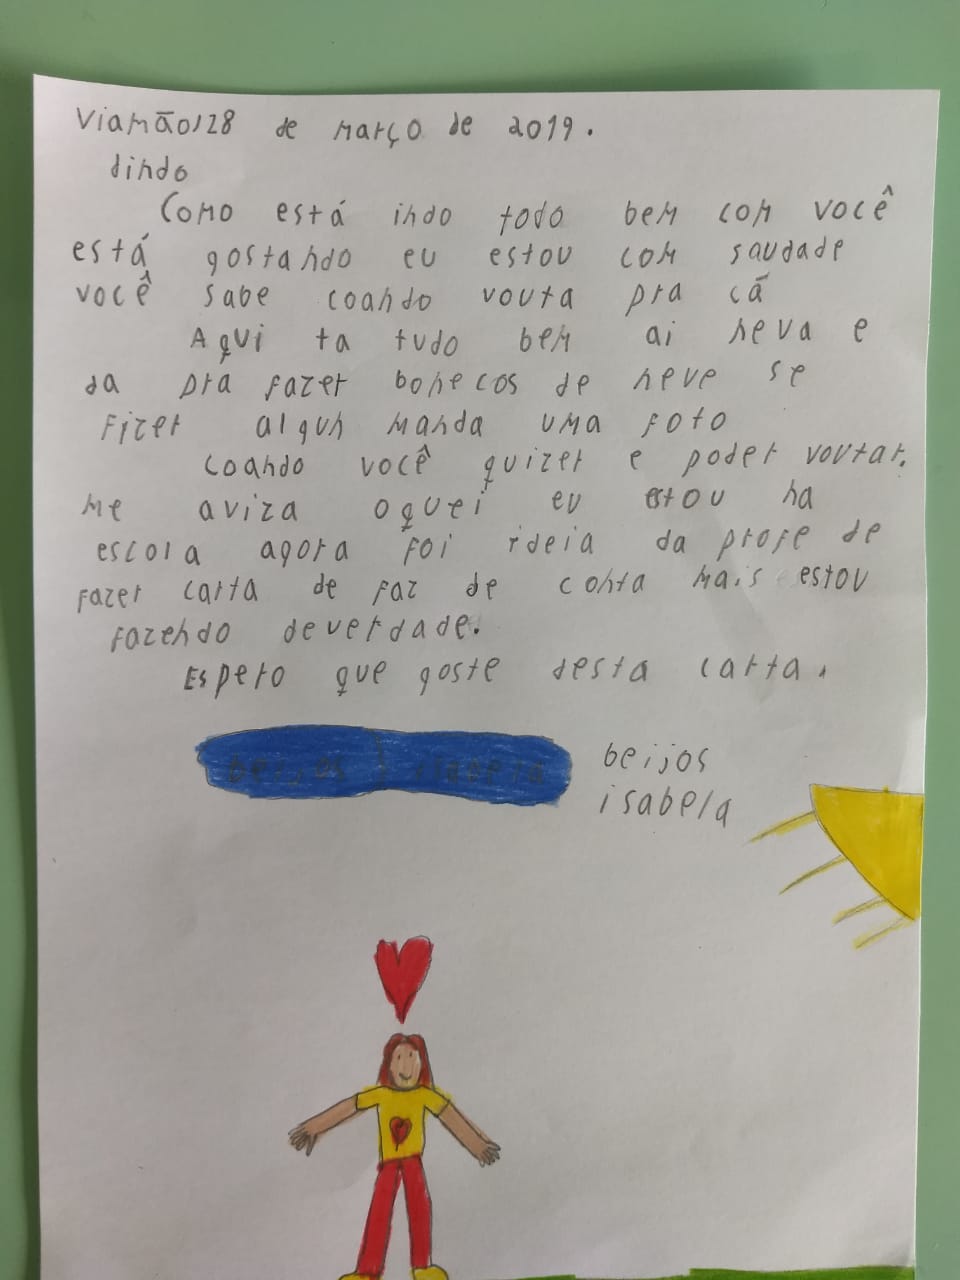 Viamão, 28 de março de 2019.
dindo
Como está indo todo bem com você
está gostando eu estou com saudade
você sabe coando vouta pra cã
Aqui ta tudo bem ai neva e
da pra fazer bonecos de neve se
fizer algun manda uma foto
coando você quizer e poder voutar.
me aviza oquei eu estou na
escola agora foi ideia da profe de
fazer carta de faz de conta mais estou
fazendo deverdade.
Espero que goste desta carta.
beijos
isabela